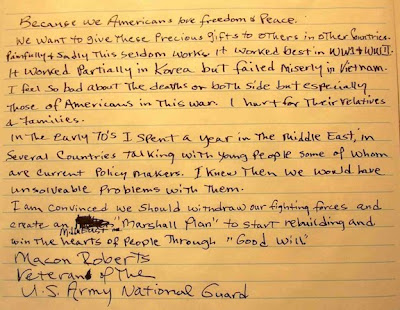 Because we Americans love freedom & Peace.
We want to give these Precious gifts to others in other Countries.
Painfully & Sadly This seldom works. It worked best in WWI & WWII.
It Worked Partially in Korea but failed Miserly in Vietnam.
I feel so bad about The deaths on both side but especially
those of Americans in this war. I hurt for Their relatives
& families.
In the Early 70's I spent a year in The Middle East, in
Several Countries Talking with Young People some of whom
are current Policy makers. I Knew Then we would have
unsolveable Problems with Them.
I am convinced we should withdraw our fighting forces and
create an Mideast "Marshall Plan" to start rebuilding and
win the hearts of People Through "Good Will"
Macon Roberts
Veteran of The
U.S. Army National Guard